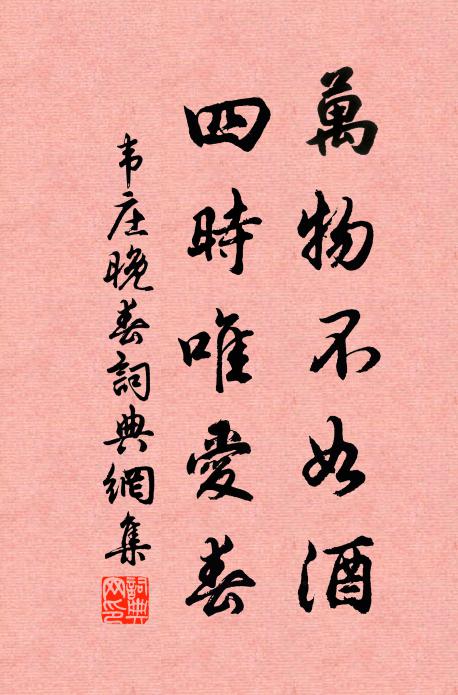 萬物不如酒
四時唯愛春
韦庄晚春詞典網集
詞典網印